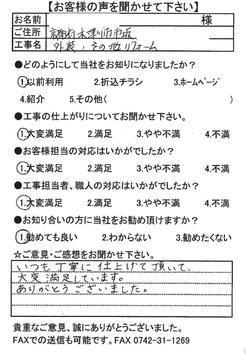 【お客様の声を聞かせて下さい】
お名前 様
ご住所 京都府木津川市市坂
工事名 外装、その他リフォーム
●どのようにして当社をお知りになりましたか？
①以前利用 2.折込チラシ 3.ホームページ
4.紹介 5.その他( )
●工事の仕上がりについてお聞かせ下さい。
①大変満足 2.満足 3.やや不満 4.不満
●お客様担当の対応はいかがでしたか？
①大変満足 2.満足 3.やや不満 4.不満
●工事担当者、職人の対応はいかがでしたか？
①大変満足 2.満足 3.やや不満 4.不満
●お知り合いの方に当社をお勧め頂けますか？
①勧めても良い 2.わからない 3.勧めたくない
☆ご意見・ご感想をお聞かせ下さい。
いつも丁寧に仕上げて頂いて、
大変満足しています。
ありがとうございました。
貴重なご意見、誠にありがとうございました。
FAXでの送信も可能です。FAX 0742-31-1269